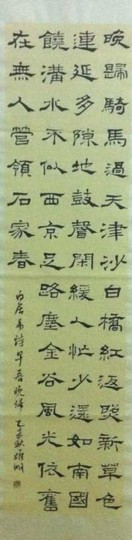 晚歸騎馬過天津沙白橋紅返照新草色
連延多隙地鼓聲閑緩人忙少還如南國
饒溝水不似西京足路塵金谷風光依舊
在無人管領石家春
白居易詩早春晚歸 乙未秋